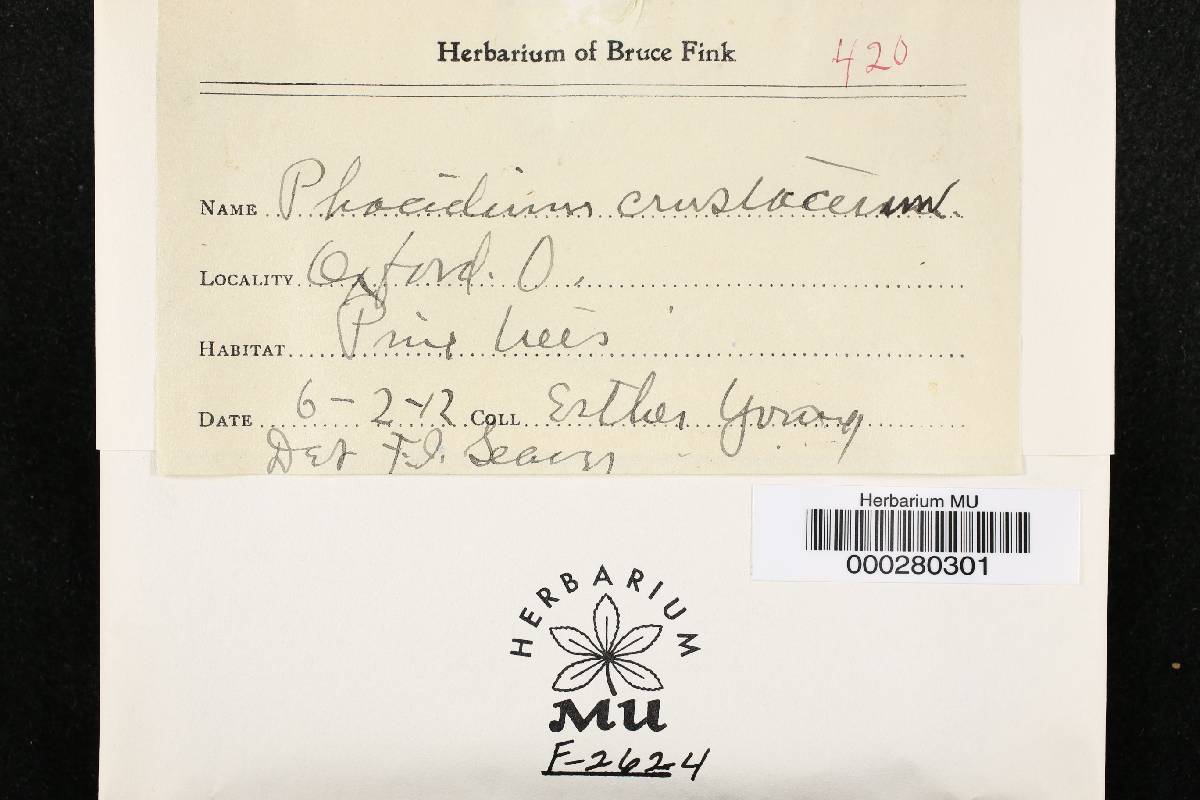 Herbarium of Bruce Fink 420
NAME Phacidium crustaceum
LOCALITY Oxford. O.
HABITAT Pine trees
DATE 6-2-12 COLL Esther Young
Det F.J. Seaver
Herbarium MU
000280301
HERBARIUM
MU
F-2624